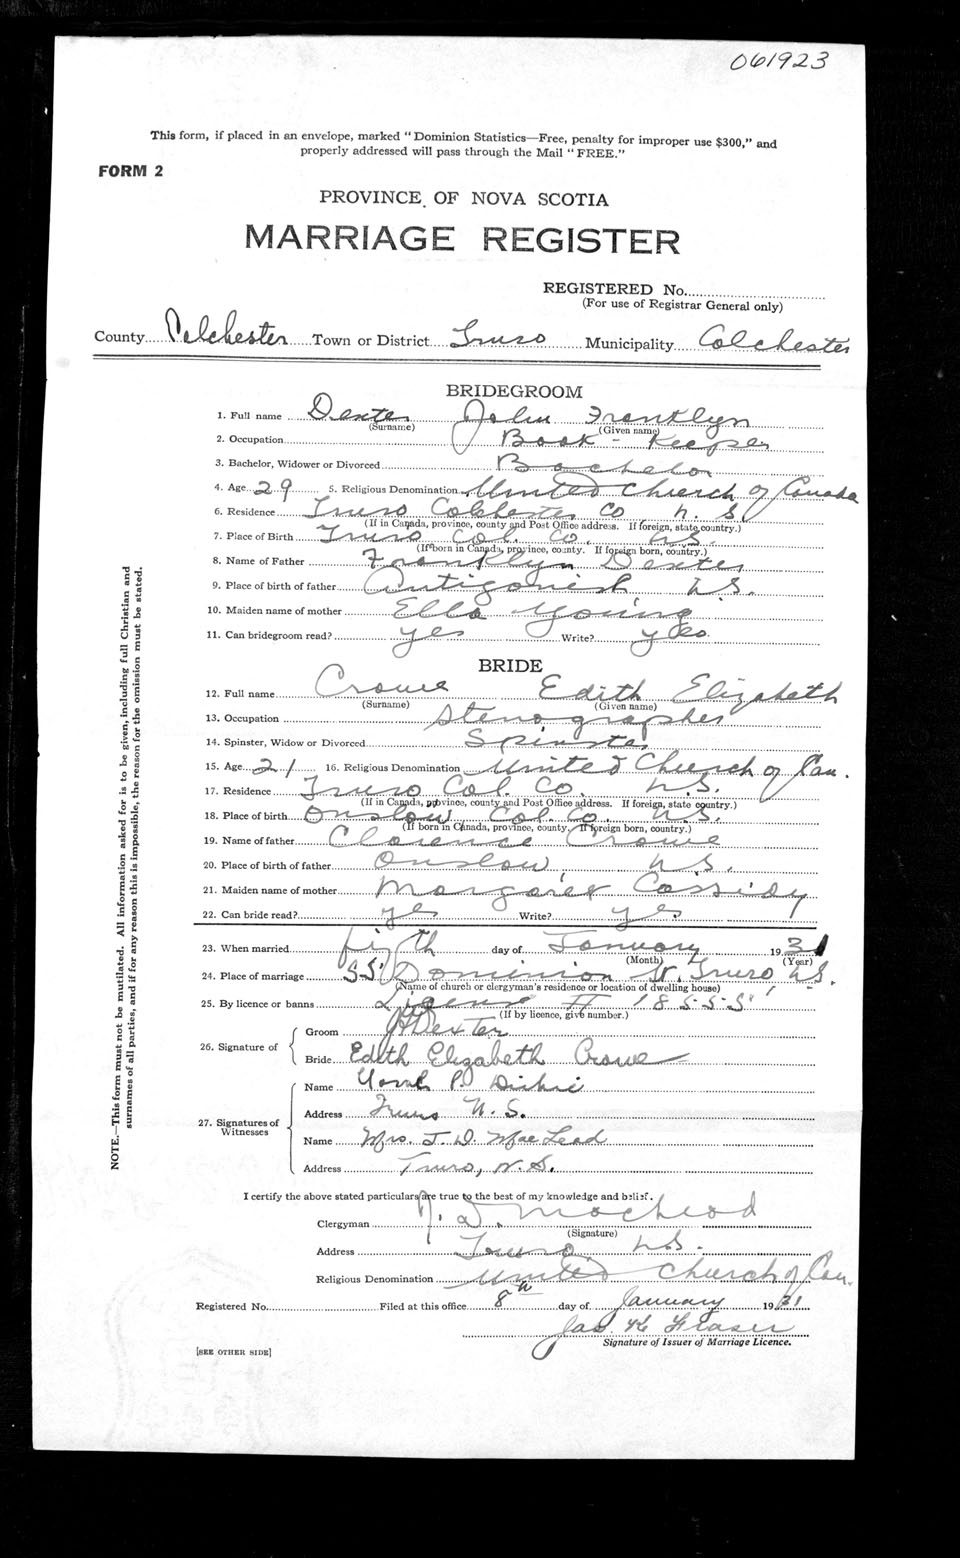 061923
This form, if placed in an envelope, marked "Dominion Statistics—Free, penalty for improper use $300," and
properly addressed will pass through the Mail "FREE."
FORM 2
PROVINCE OF NOVA SCOTIA
MARRIAGE REGISTER
REGISTERED No.
(For use of Registrar General only)
County Colchester Town or District Truro Municipality Colchester
BRIDEGROOM
1. Full name Dexter John Franklyn
(Surname) (Given name)
2. Occupation Book-Keeper
3. Bachelor, Widower or Divorced Bachelor
4. Age 29 5. Religious Denomination United Church of Canada
6. Residence Truro Colchester Co N.S
(If in Canada, province, county and Post Office address. If foreign, state country.)
7. Place of Birth Truro Col. Co. N.S.
(If born in Canada, province, county. If foreign born, country.)
8. Name of Father Franklyn Dexter
9. Place of birth of father Antigonish N.S.
10. Maiden name of mother Ella Young
11. Can bridegroom read? yes Write? yes.
BRIDE
12. Full name Crowe Edith Elizabeth
(Surname) (Given name)
13. Occupation Stenographer
14. Spinster, Widow or Divorced Spinster
15. Age 21 16. Religious Denomination United Church of Can.
17. Residence Truro Col. Co. N.S.
(If in Canada, province, county and Post Office address. If foreign, state country.)
18. Place of birth Onslow Col. Co. N.S.
(If born in Canada, province, county. If foreign born, country.)
19. Name of father Clarence Crowe
20. Place of birth of father Onslow, N.S.
21. Maiden name of mother Margaret Cassidy
22. Can bride read? yes Write? yes
23. When married fifth day of January 1931
(Month) (Year)
24. Place of marriage 55 Dominion St. Truro, N.S.
(Name of church or clergyman's residence or location of dwelling house)
25. By licence or banns License # 18555
(If by licence, give number.)
26. Signature of
Groom Dexter
Bride Edith Elizabeth Crowe
27. Signatures of Witnesses
Name P. Dickie
Address Truro N.S.
Name Mrs. J. D. MacLeod
Address Truro, N.S.
I certify the above stated particulars are true to the best of my knowledge and belief.
Clergyman J. D. MacLeod
(Signature)
Address Truro N.S.
Religious Denomination United Church of Can.
Registered No. Filed at this office 8th day of January 1931
Jas. Fraser
Signature of Issuer of Marriage Licence.
[SEE OTHER SIDE]
NOTE.—This form must not be mutilated. All information asked for is to be given, including full Christian and
surnames of all parties, and if for any reason this is impossible, the reason for the omission must be stated.